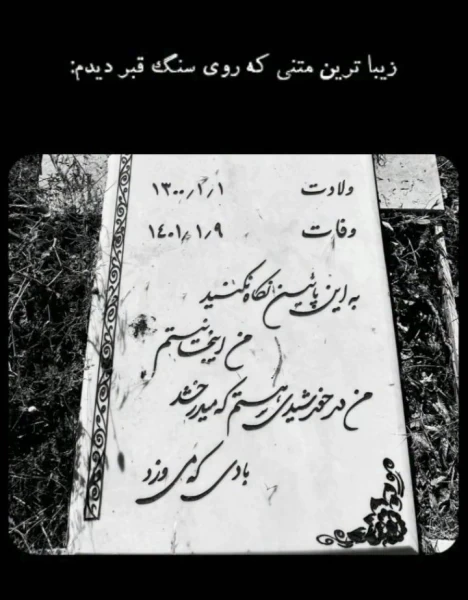 زیبا ترین متنی که روی سنگ قبر دیدم:
ولادت ۱۳۰۰/۱/۱
وفات ۱۴۰۱/۱/۹
به این پائین نگاه نکنید
من اینجا نیستم
من در خورشیدی هستم که میدرخشد
بادی که می وزد